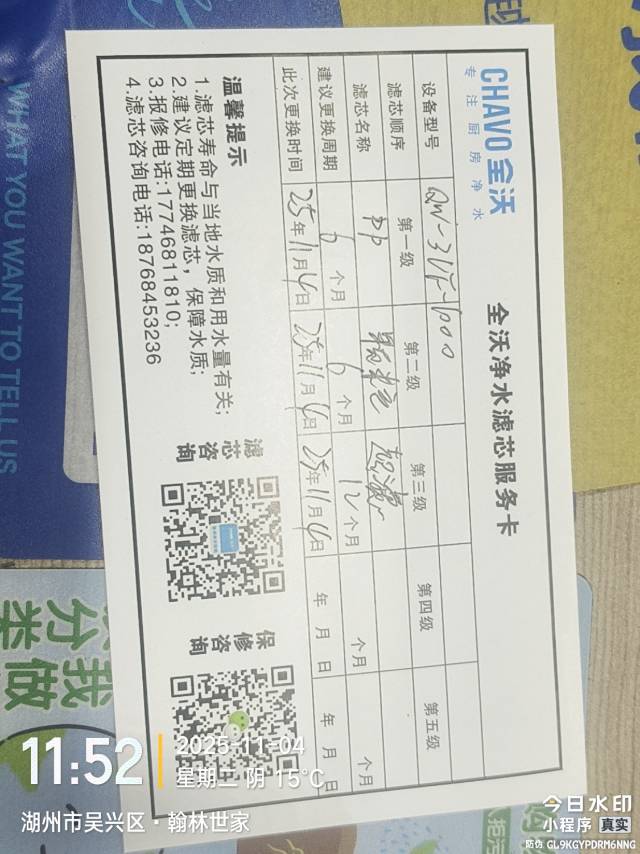 CHAVO 全沃
专注厨房净水
全沃净水滤芯服务卡
设备型号 QW-3UF-600
滤芯顺序 第一级 第二级 第三级 第四级 第五级
滤芯名称 PP 超滤
建议更换周期 6个月 6个月 12个月 个月 个月
此次更换时间 25年11月4日 25年11月4日 25年11月4日 年 月 日 年 月 日
温馨提示
1.滤芯寿命与当地水质和用水量有关;
2.建议定期更换滤芯,保障水质;
3.报修电话:17746811810;
4.滤芯咨询电话:18768453236
滤芯咨询
保修咨询
WHAT YOU WANT TO TELL US
分类
我做
11:52
2025-11-04
星期二 阴 15℃
湖州市吴兴区·翰林世家
今日水印
小程序 真实
防伪 GL9KGYPDRM6NNG